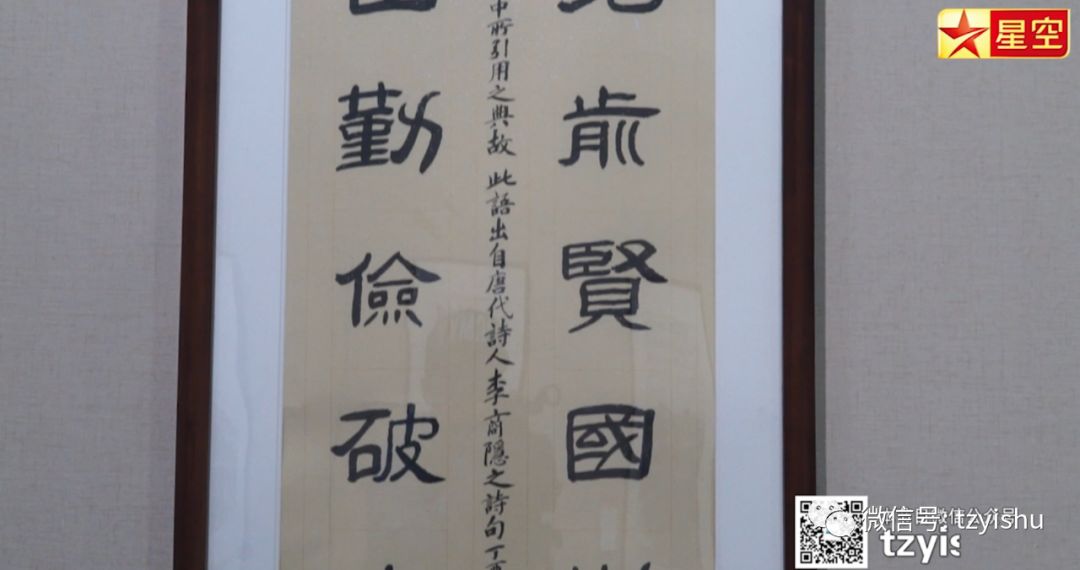 星空
前賢國
中所引用之典故 此語出自唐代詩人李商隱之詩句丁
勤儉破
微信号: tzyishu
tzyis